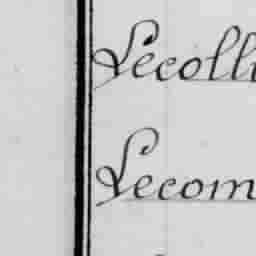 Lecoll
Lecom